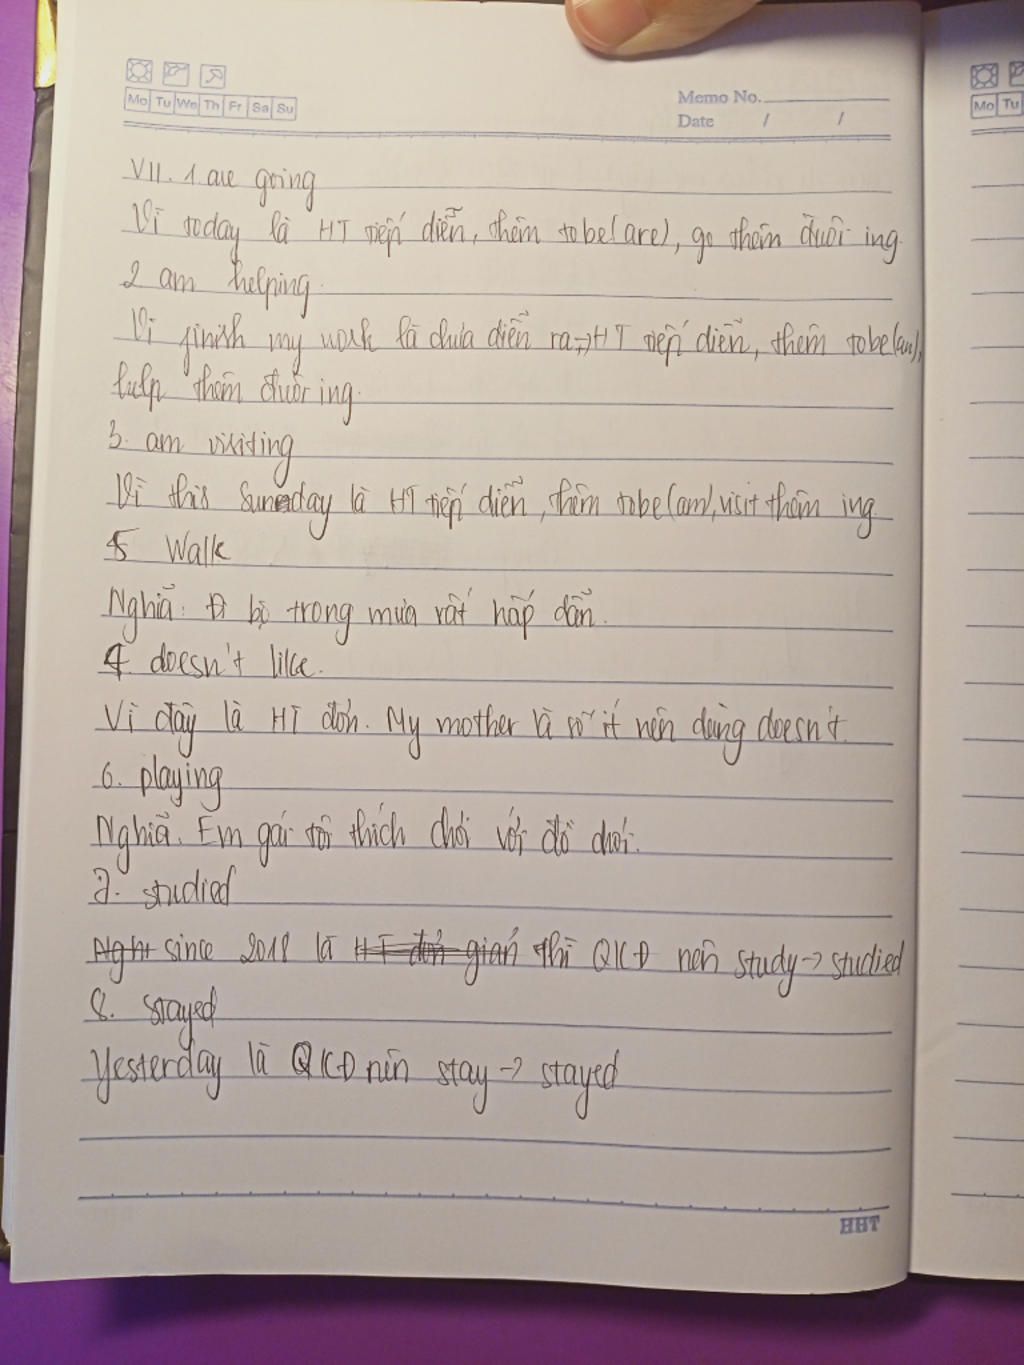 Mo Tu We Th Fr Sa Su
Memo No.
Date / /
Mo Tu
VII. 1. are going
Vì today là HT tiếp diễn, thêm tobe(are), go thêm đuôi ing.
2 am helping.
Vì finish my work là chưa diễn ra => HT tiếp diễn, thêm tobe(am),
help thêm đuôi ing.
3. am visiting
Vì this Sunday là HT tiếp diễn, thêm tobe(am), visit thêm ing.
5 Walk
Nghĩa: Đi bộ trong mưa rất hấp dẫn.
4 doesn't like.
Vì đây là HT đơn. My mother là số ít nên dùng doesn't.
6. playing
Nghĩa. Em gái tôi thích chơi với đồ chơi.
7. studied
Nghi since 2018 là HT đơn gian thì QKĐ nên study -> studied
8. stayed
Yesterday là QKĐ nên stay -> stayed
HHT